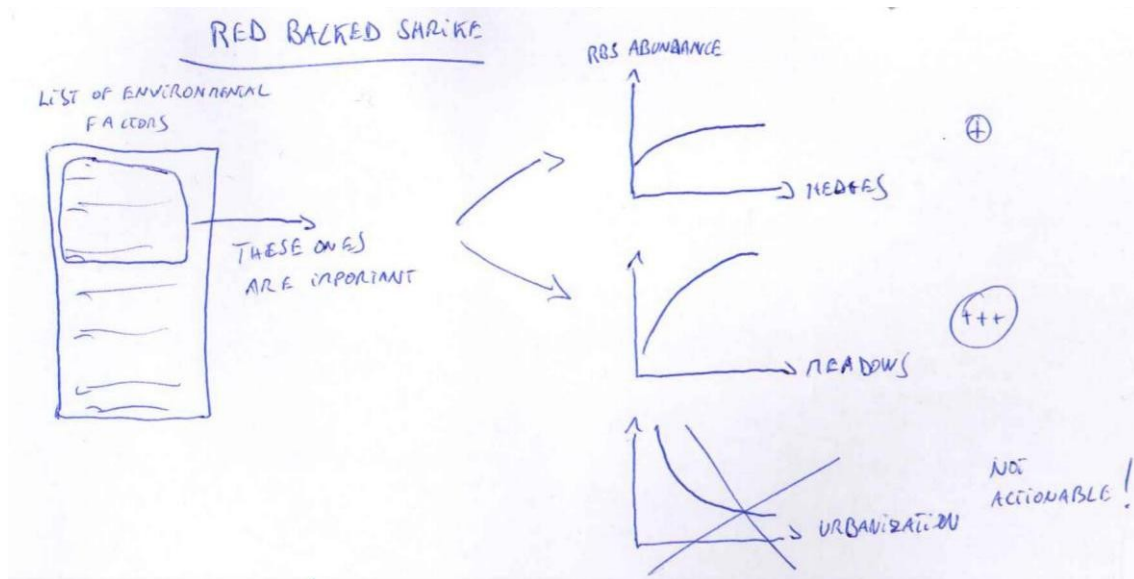 RED BACKED SHRIKE
LIST OF ENVIRONMENTAL
FACTORS
THESE ONES
ARE IMPORTANT
RBS ABUNDANCE
HEDGES
+
MEADOWS
+++
URBANIZATION
NOT
ACTIONABLE!